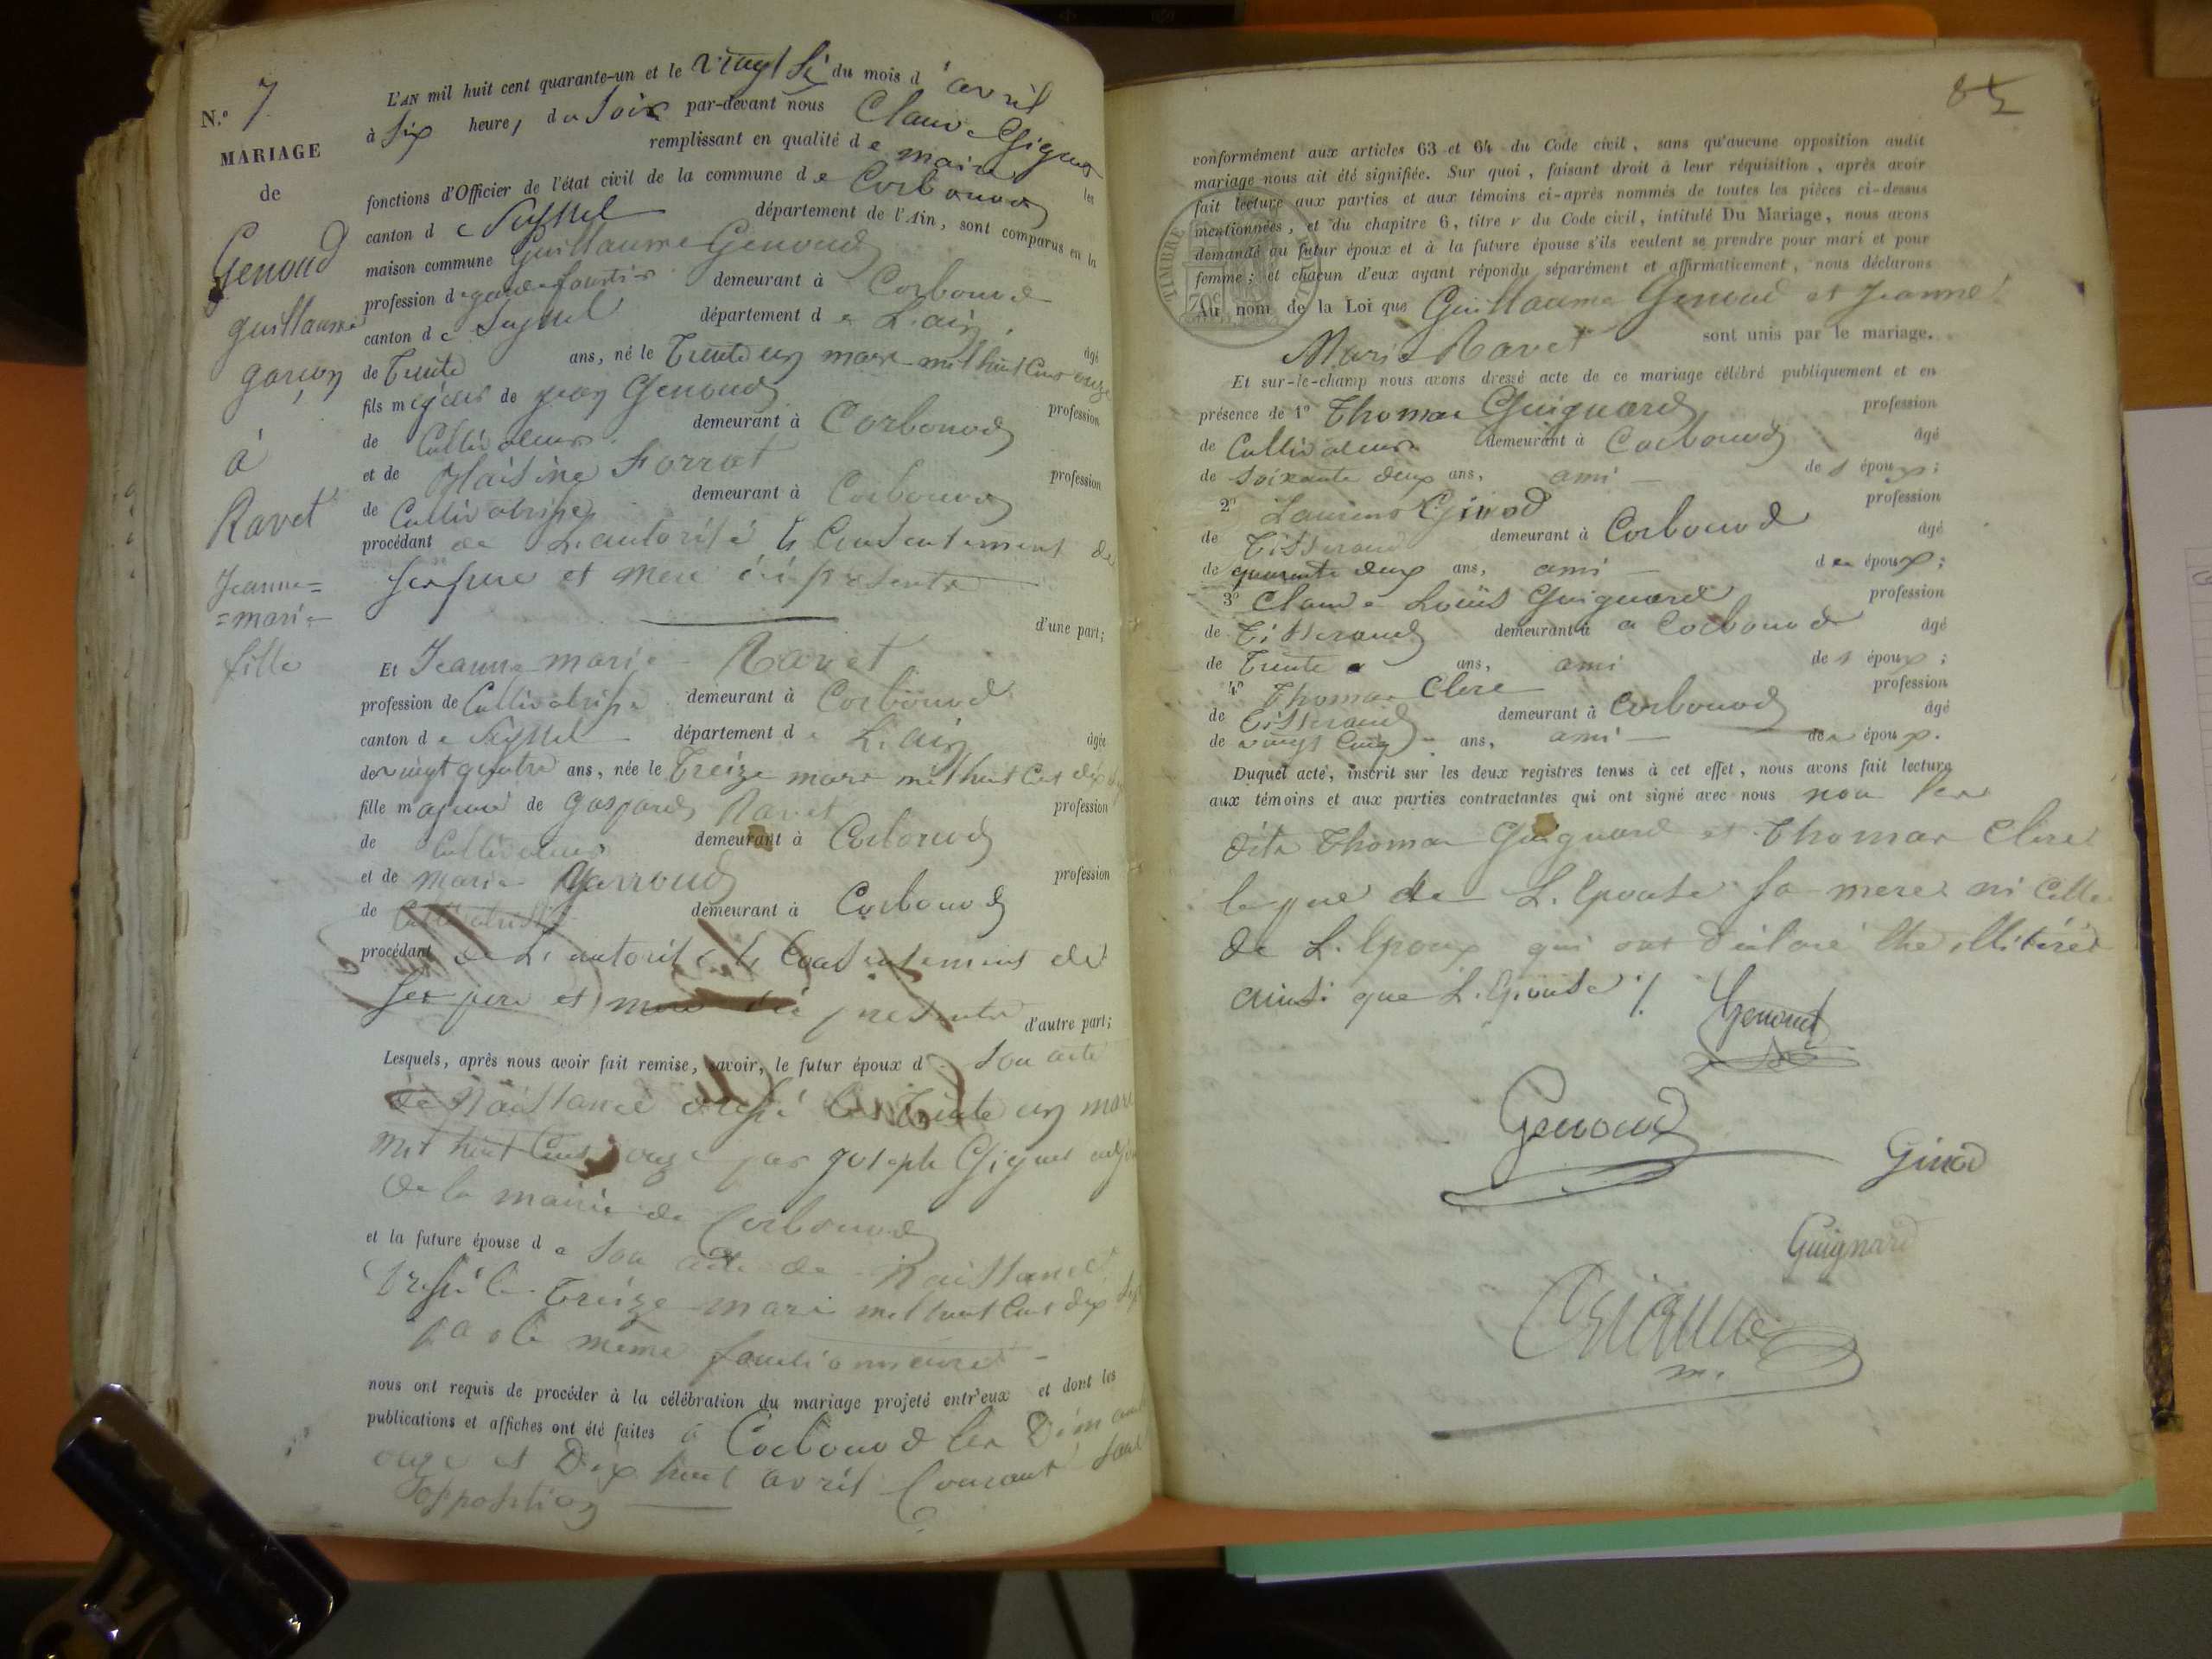 N.º 7
MARIAGE
de
Genoud
guillaume
garçon
à
Ravet
Jeanne=
=marie
fille
L'AN mil huit cent quarante-un et le vingt six du mois d'avril
à six heures du soir par-devant nous Claude Gignet
remplissant en qualité de maire les
fonctions d'Officier de l'état civil de la commune de Corbonod
canton de Seyssel département de l'Ain, sont comparus en la
maison commune Guillaume Genoud
profession de garde forestier demeurant à Corbonod
canton de Seyssel département de L'ain, âgé
de Trente ans, né le Trente un mars mil huit Cent onze
fils majeur de jean Genoud profession
de Cultivateur demeurant à Corbonod
et de Maisine Forrat profession
de Cultivatrise demeurant à Corbonod
procédant de L'autorité & Consentement de
ses pere et mere ici présents
d'une part;
Et Jeanne marie Ravet
profession de Cultivatrise demeurant à Corbonod
canton de Seyssel département de L'ain âgée
de vingt quatre ans, née le Treize mars mil huit Cent dix
fille majeure de Gaspard Ravet profession
de Cultivateur demeurant à Corbonod
et de marie Marroud profession
de Cultivatrise demeurant à Corbonod
procédant de L'autorité & Consentement de
ses pere et mere ici presents
d'autre part;
Lesquels, après nous avoir fait remise, savoir, le futur époux de son acte
de Naissance dressé le Trente un mars
mil huit Cent onze par joseph Gignet
de la mairie de Corbonod
et la future épouse de son acte de Naissance
Dressé le Treize mars mil huit Cent dix sept
par le même fonctionnaire
nous ont requis de procéder à la célébration du mariage projeté entr'eux et dont les
publications et affiches ont été faites à Corbonod les Dimanches
onze et Dix huit avril Courant sans
opposition
85
conformément aux articles 63 et 64 du Code civil, sans qu'aucune opposition audit
mariage nous ait été signifiée. Sur quoi, faisant droit à leur réquisition, après avoir
fait lecture aux parties et aux témoins ci-après nommés de toutes les pièces ci-dessus
mentionnées, et du chapitre 6, titre V du Code civil, intitulé Du Mariage, nous avons
demandé au futur époux et à la future épouse s'ils veulent se prendre pour mari et pour
femme; et chacun d'eux ayant répondu séparément et affirmativement, nous déclarons
Au nom de la Loi que Guillaume Genoud et Jeanne
Marie Ravet sont unis par le mariage.
TIMBRE
70c
Et sur-le-champ nous avons dressé acte de ce mariage célébré publiquement et en
présence de 1º Thomas Guignard profession
de Cultivateur demeurant à Corbonod âgé
de soixante deux ans, ami des époux;
2º Laurens Girod profession
de Tisserand demeurant à Corbonod âgé
de quarante deux ans, ami des époux;
3º Claude Louis Guignard profession
de Tisserand demeurant à a Corbonod âgé
de Trente ans, ami des époux;
4º Thomas Clerc profession
de Tisserand demeurant à Corbonod âgé
de vingt Cinq ans, ami des époux.
Duquel acte, inscrit sur les deux registres tenus à cet effet, nous avons fait lecture
aux témoins et aux parties contractantes qui ont signé avec nous non les
dits Thomas Guignard et Thomas Clerc
le pere de L'épouse sa mere ni Celle
de L'époux qui ont déclaré être illitérés
ainsi que L'épouse ./.
Genoud
Genoud
Girod
Guignard